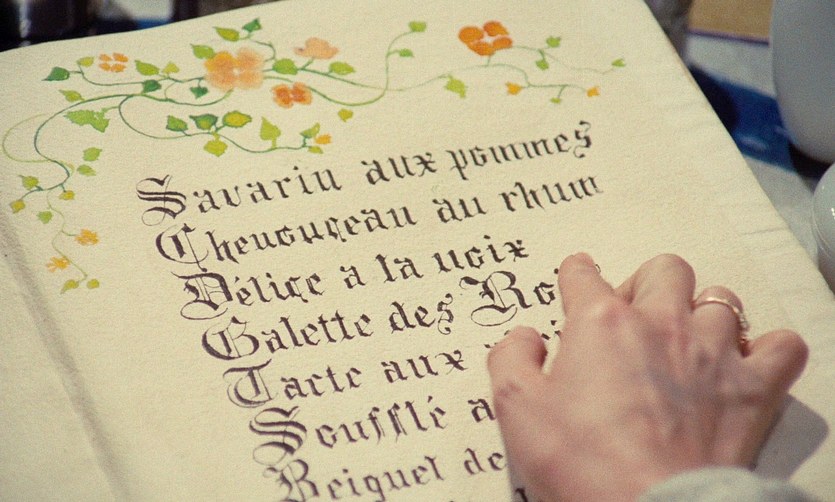 Savarin aux pommes
Chenonceau au rhum
Délice a la noix
Galette des
Tarte aux
Soufflé
Beignet de